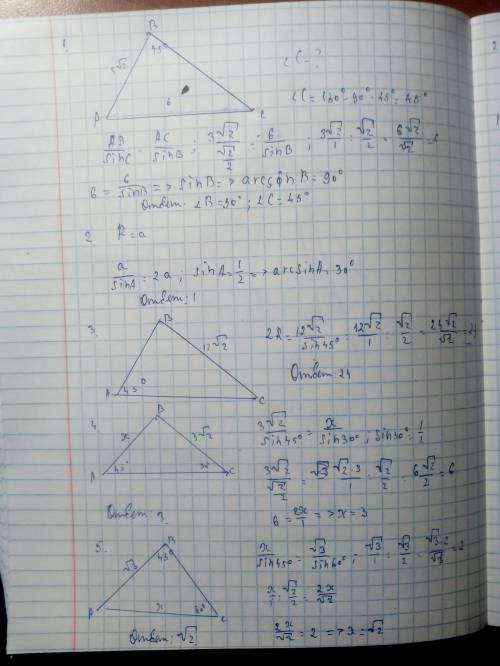 1.
B
45°
3√2
6
A
C
∠C - ?
∠C = 180° - 90° - 45° = 45°
AB/sinC = AC/sinB ; 3√2/(√2/2) = 6/sinB ; 3√2/1 : √2/2 = 6√2/√2 = 6
6 = 6/sinB => sinB => arcsin B = 90°
Ответ: ∠B = 90° ; ∠C = 45°
2. R = a
a/sinA = 2a ; sinA = 1/2 => arcsinA = 30°
Ответ: 1
3.
B
12√2
45°
A
C
2R = 12√2/sin45° = 12√2/1 : √2/2 = 24√2/√2 = 24
Ответ: 24
4.
B
x
3√2
A
45°
30°
C
3√2/sin45° = x/sin30° ; sin30° = 1/2
6 = 2x/1 => x = 3
Ответ: 3
5.
B
45°
√3
A
x
60°
C
x/sin45° = √3/sin60° ; √3/1 : √3/2 = √3·2/√3 = 2
x/1 : √2/2 = 2x/√2
2x/√2 = 2 => x = √2
Ответ: √2